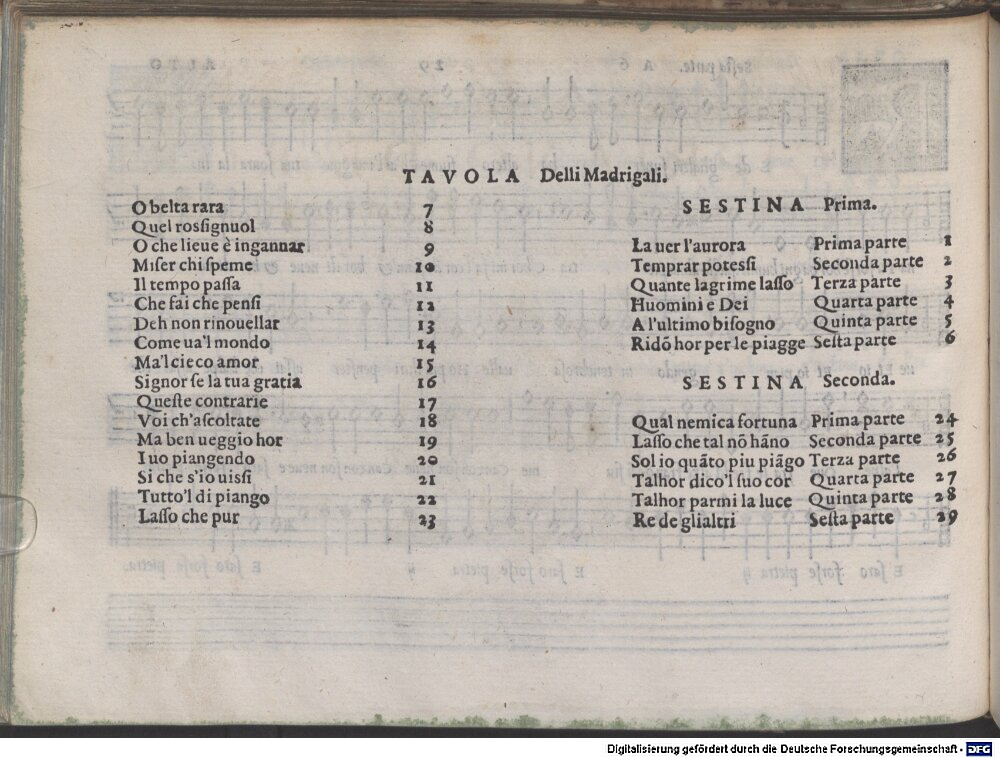 TAVOLA Delli Madrigali.
O belta rara 7
Quel rossignuol 8
O che lieue è ingannar 9
Miser chi speme 10
Il tempo passa 11
Che fai che pensi 12
Deh non rinouellar 13
Come ua'l mondo 14
Ma'l cieco amor 15
Signor se la tua gratia 16
Queste contrarie 17
Voi ch'ascoltate 18
Ma ben ueggio hor 19
I uo piangendo 20
Si che s'io uissi 21
Tutto'l di piango 22
Lasso che pur 23
SESTINA Prima.
La uer l'aurora Prima parte 1
Temprar potessi Seconda parte 2
Quante lagrime lasso Terza parte 3
Huomini e Dei Quarta parte 4
A l'ultimo bisogno Quinta parte 5
Ridō hor per le piagge Sesta parte 6
SESTINA Seconda.
Qual nemica fortuna Prima parte 24
Lasso che tal nō hāno Seconda parte 25
Sol io quāto piu piāgo Terza parte 26
Talhor dico'l suo cor Quarta parte 27
Talhor parmi la luce Quinta parte 28
Re de glialtri Sesta parte 29
Digitalisierung gefördert durch die Deutsche Forschungsgemeinschaft - DFG